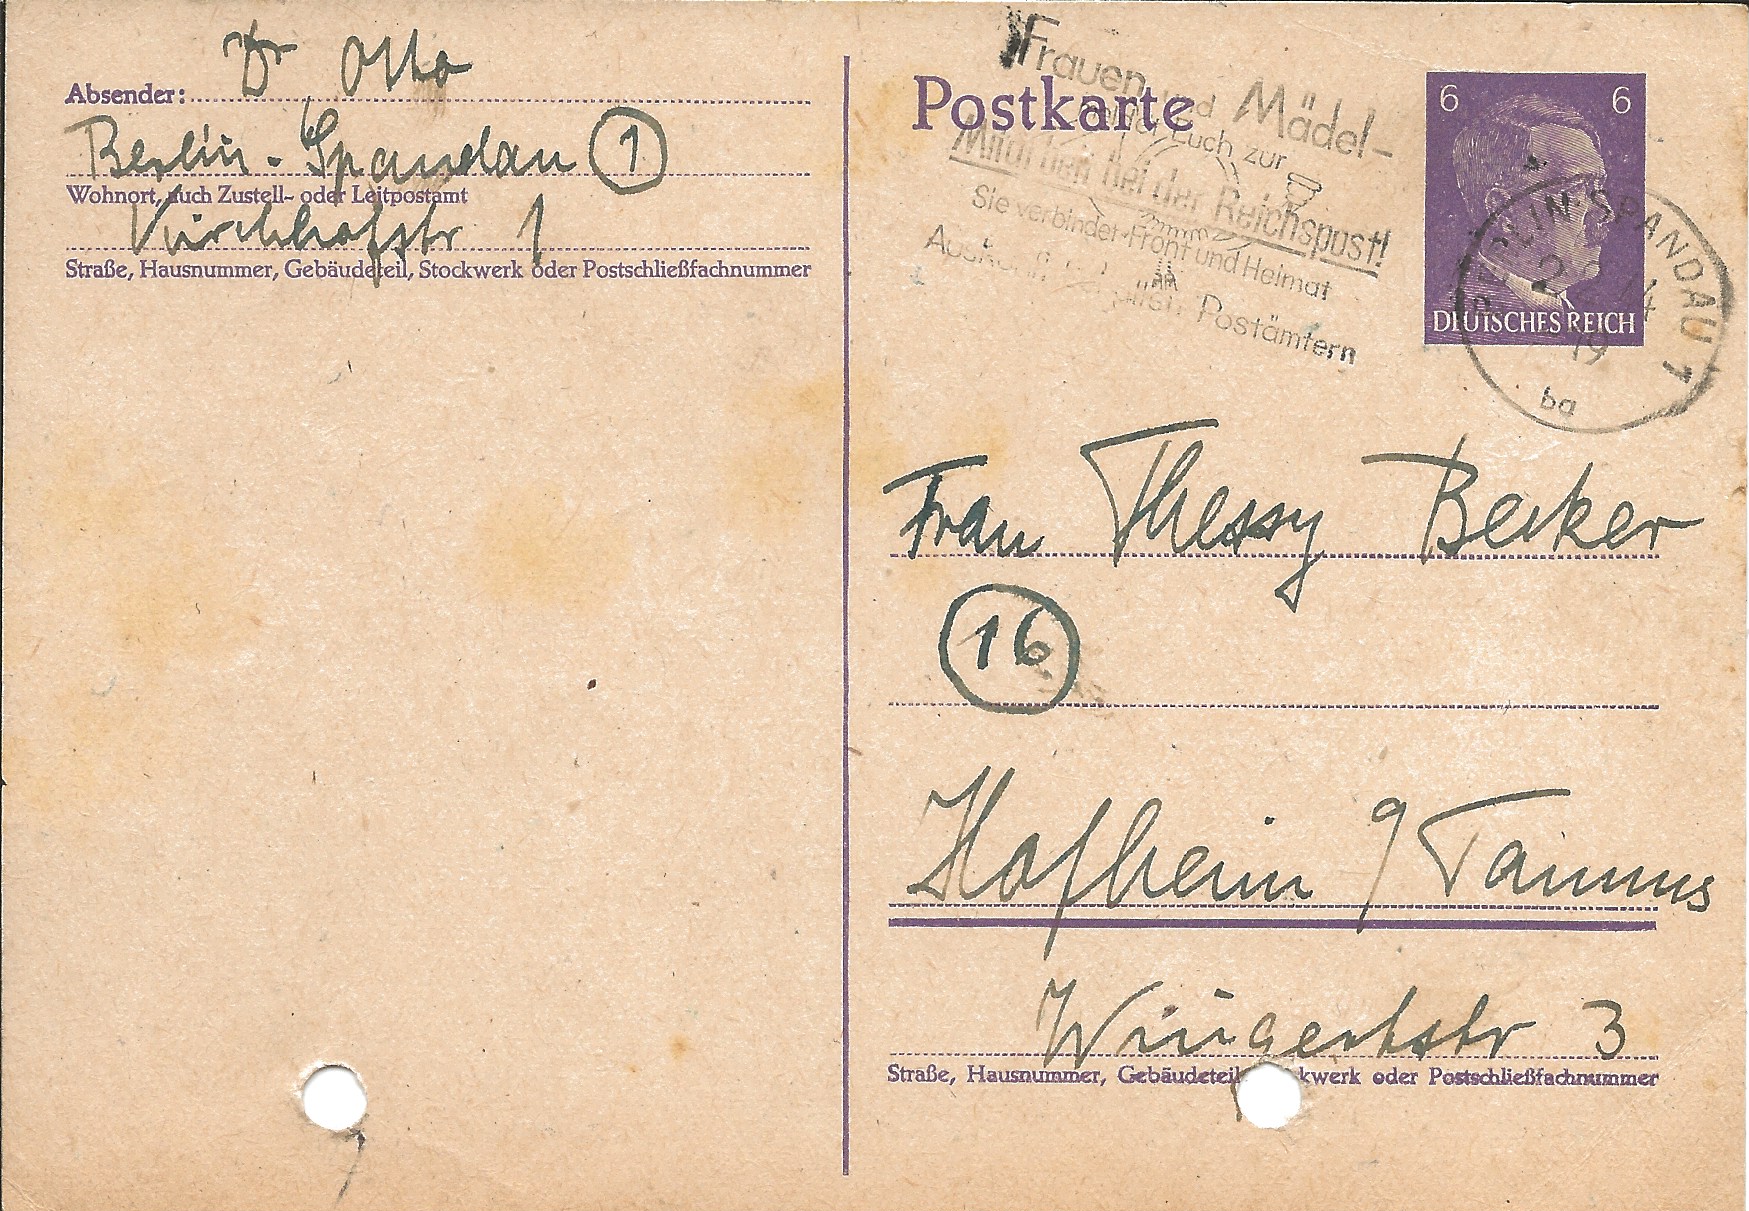 Absender: Dr Otto
Berlin-Spandau 1
Wohnort, auch Zustell- oder Leitpostamt
Kirchhofstr 1
Straße, Hausnummer, Gebäudeteil, Stockwerk oder Postschließfachnummer
Postkarte
Frauen und Mädel-
Euch zur
Mitmachen bei der Reichspost!
Sie verbindet Front und Heimat
Postämtern
6 6
DEUTSCHES REICH
BERLIN-SPANDAU 1
19
ba
Frau Thessy Becker
16
Hofheim / Taunus
Wingertstr 3
Straße, Hausnummer, Gebäudeteil, Stockwerk oder Postschließfachnummer